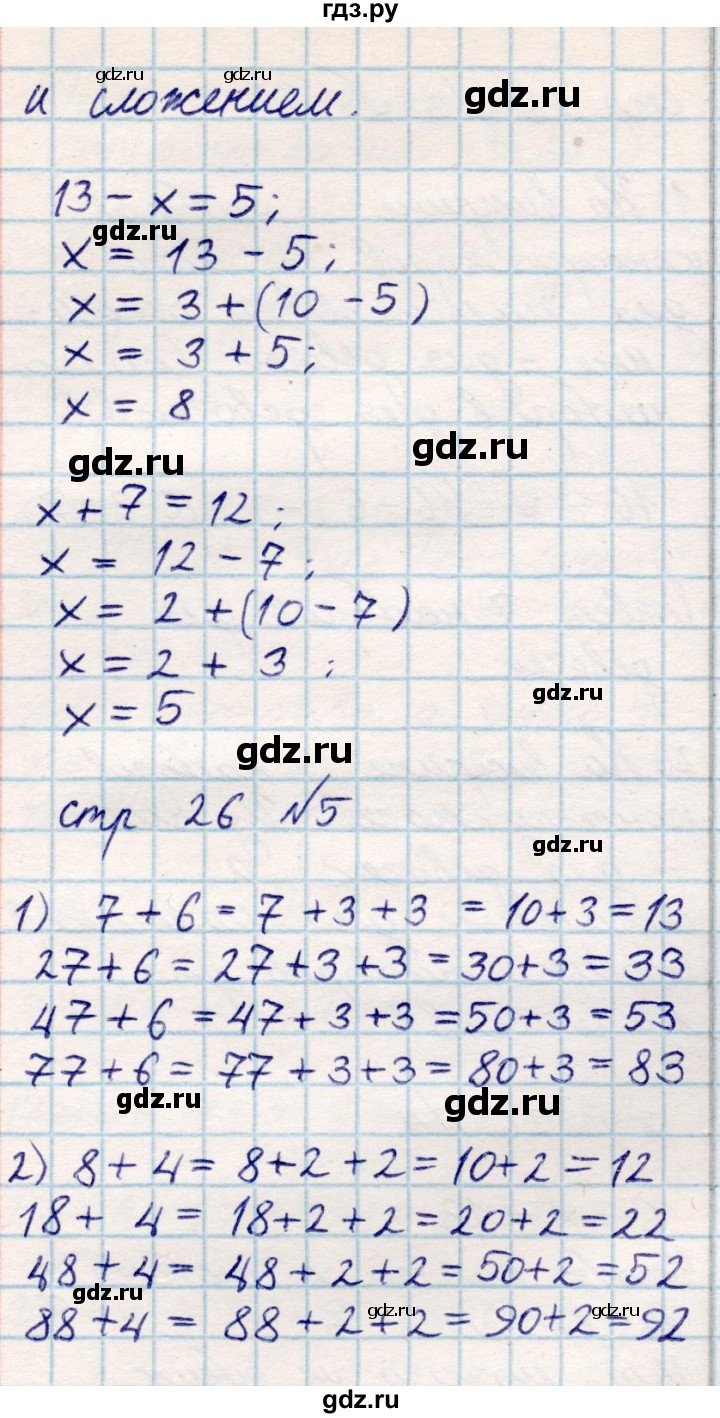 гдз.ру
gdz.ru gdz.ru
gdz.ru
и сложением.
13 - x = 5;
gdz.ru
x = 13 - 5;
x = 3 + (10 - 5)
x = 3 + 5;
x = 8
gdz.ru gdz.ru
x + 7 = 12;
x = 12 - 7;
x = 2 + (10 - 7)
x = 2 + 3 ;
gdz.ru
x = 5
gdz.ru
стр 26 №5
gdz.ru
1) 7 + 6 = 7 + 3 + 3 = 10 + 3 = 13
27 + 6 = 27 + 3 + 3 = 30 + 3 = 33
47 + 6 = 47 + 3 + 3 = 50 + 3 = 53
77 + 6 = 77 + 3 + 3 = 80 + 3 = 83
gdz.ru gdz.ru
2) 8 + 4 = 8 + 2 + 2 = 10 + 2 = 12
18 + 4 = 18 + 2 + 2 = 20 + 2 = 22
48 + 4 = 48 + 2 + 2 = 50 + 2 = 52
gdz.ru gdz.ru gdz.ru
88 + 4 = 88 + 2 + 2 = 90 + 2 = 92
gdz.ru